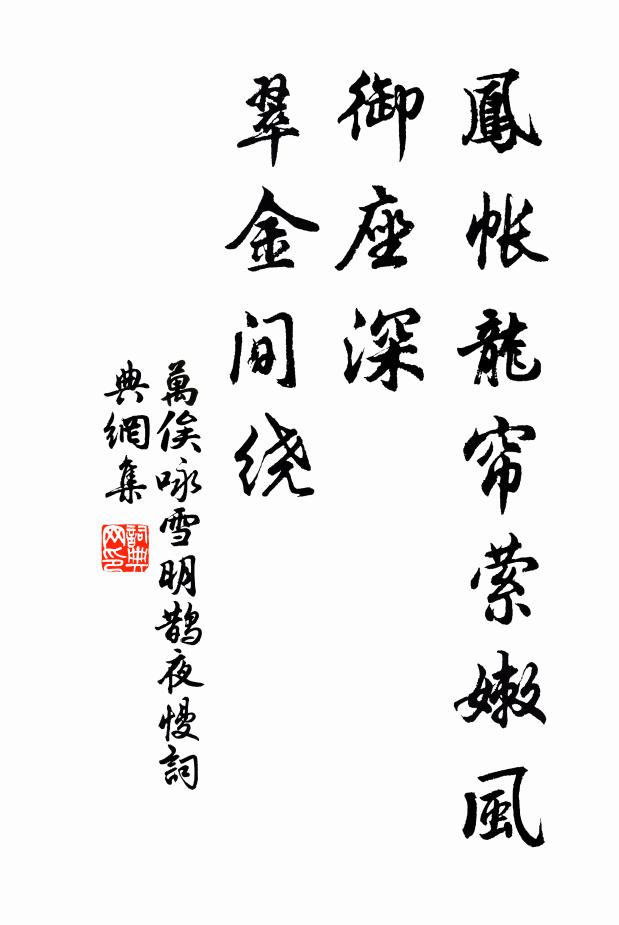 鳳帐龍帘萦嫩風
御座深
翠金间绕
萬俟咏雪明鹊夜慢詞
典網集
詞典
网印